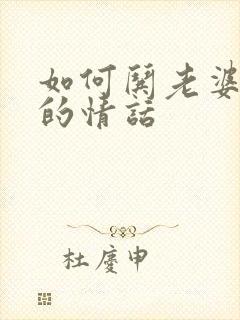 如何鬨老婆
的情話
杜慶申